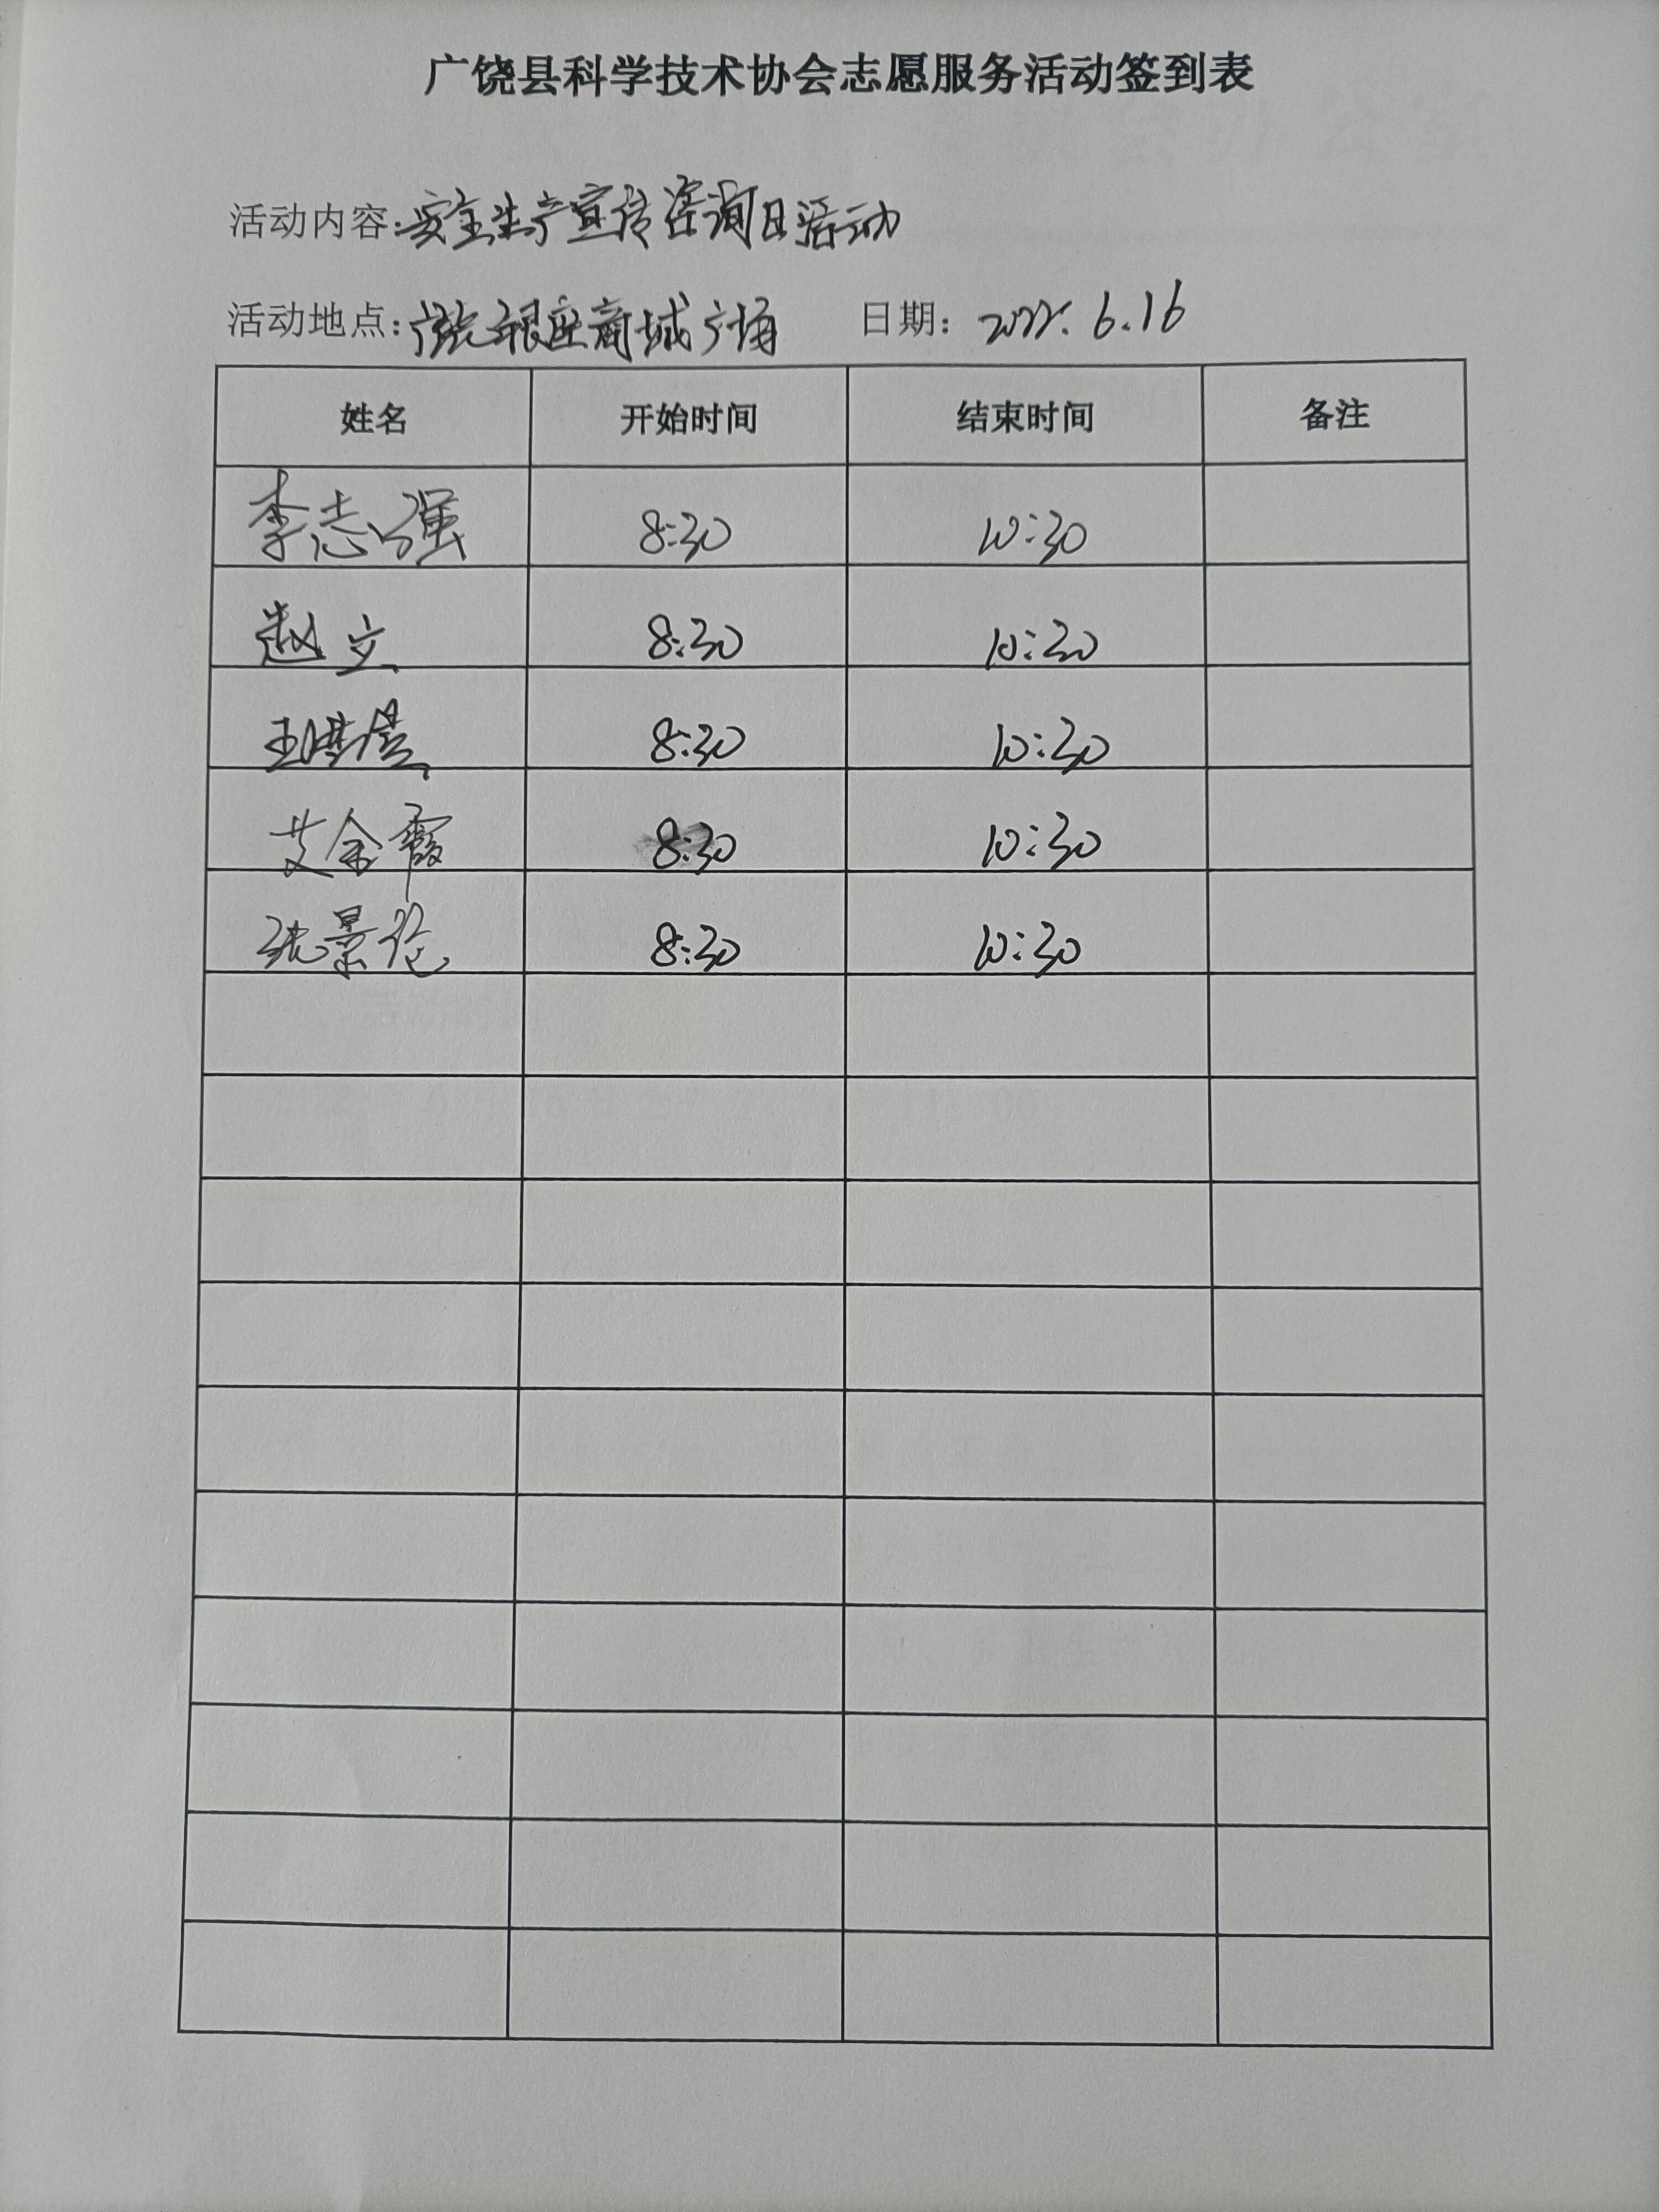 广饶县科学技术协会志愿服务活动签到表
活动内容:安全生产宣传咨询日活动
活动地点:广饶银座商城广场 日期:2022.6.16
姓名 开始时间 结束时间 备注
李志强 8:30 10:30
赵立 8:30 10:30
王 8:30 10:30
艾金霞 8:30 10:30
张景 8:30 10:30